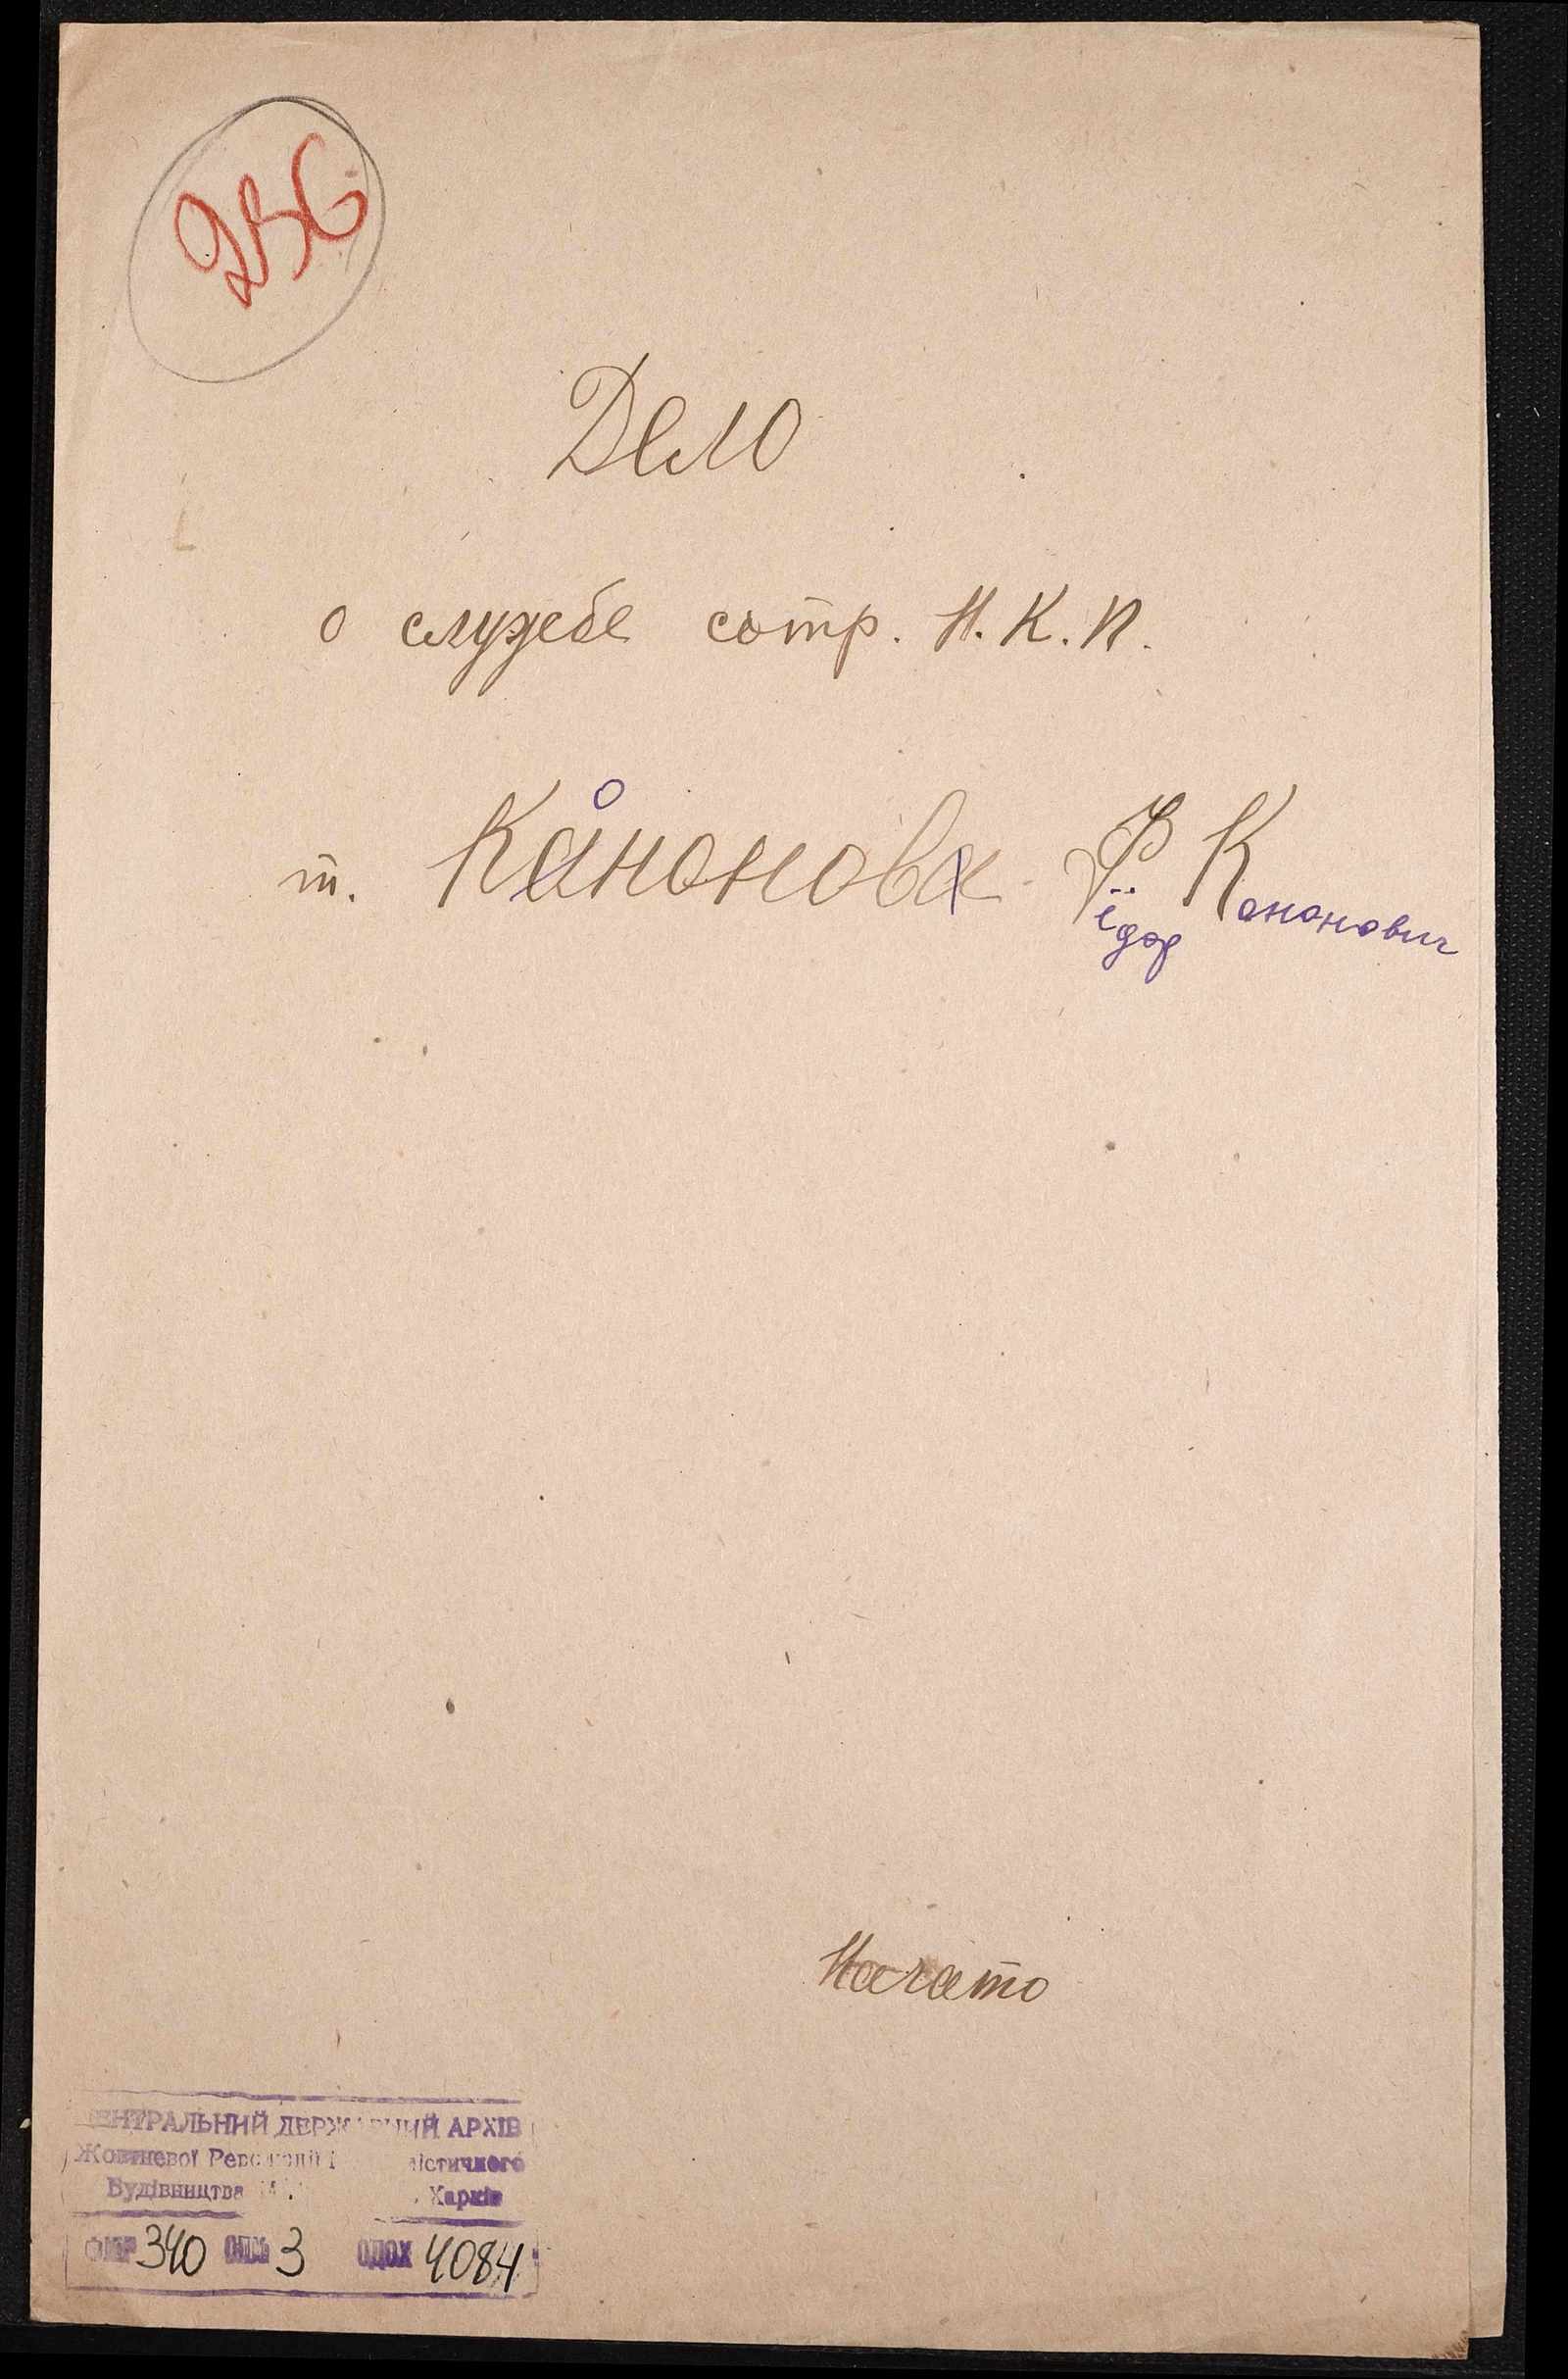 236
Дело
о службе сотр. Н.К.П.
т. Кононова Ф К
ёдор ононович
Начато
ЦЕНТРАЛЬНИЙ ДЕРЖАВНИЙ АРХІВ
Жовтневої Революції
Будівництва Харків
340 3 ОДОХ 4084